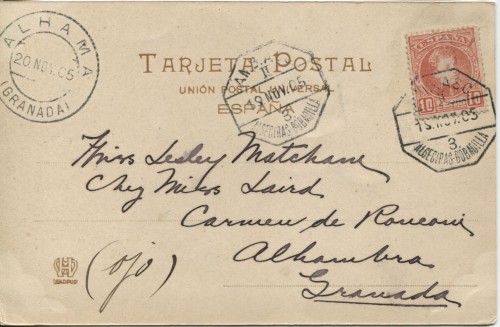 ALHAMA
20.NOV.05
(GRANADA)
TARJETA POSTAL
UNIÓN POSTAL UNIVERSAL
ESPAÑA
AN
19.NOV.05
3.
ALGECIRAS-BOBADILLA
ESPAÑA
10 10
19.NOV.05
3.
ALGECIRAS-BOBADILLA
Miss Lesley Matchane
Chez Miss Laird
Carmen de Ronconi
Alhambra
Granada
(ojo)
MADRID